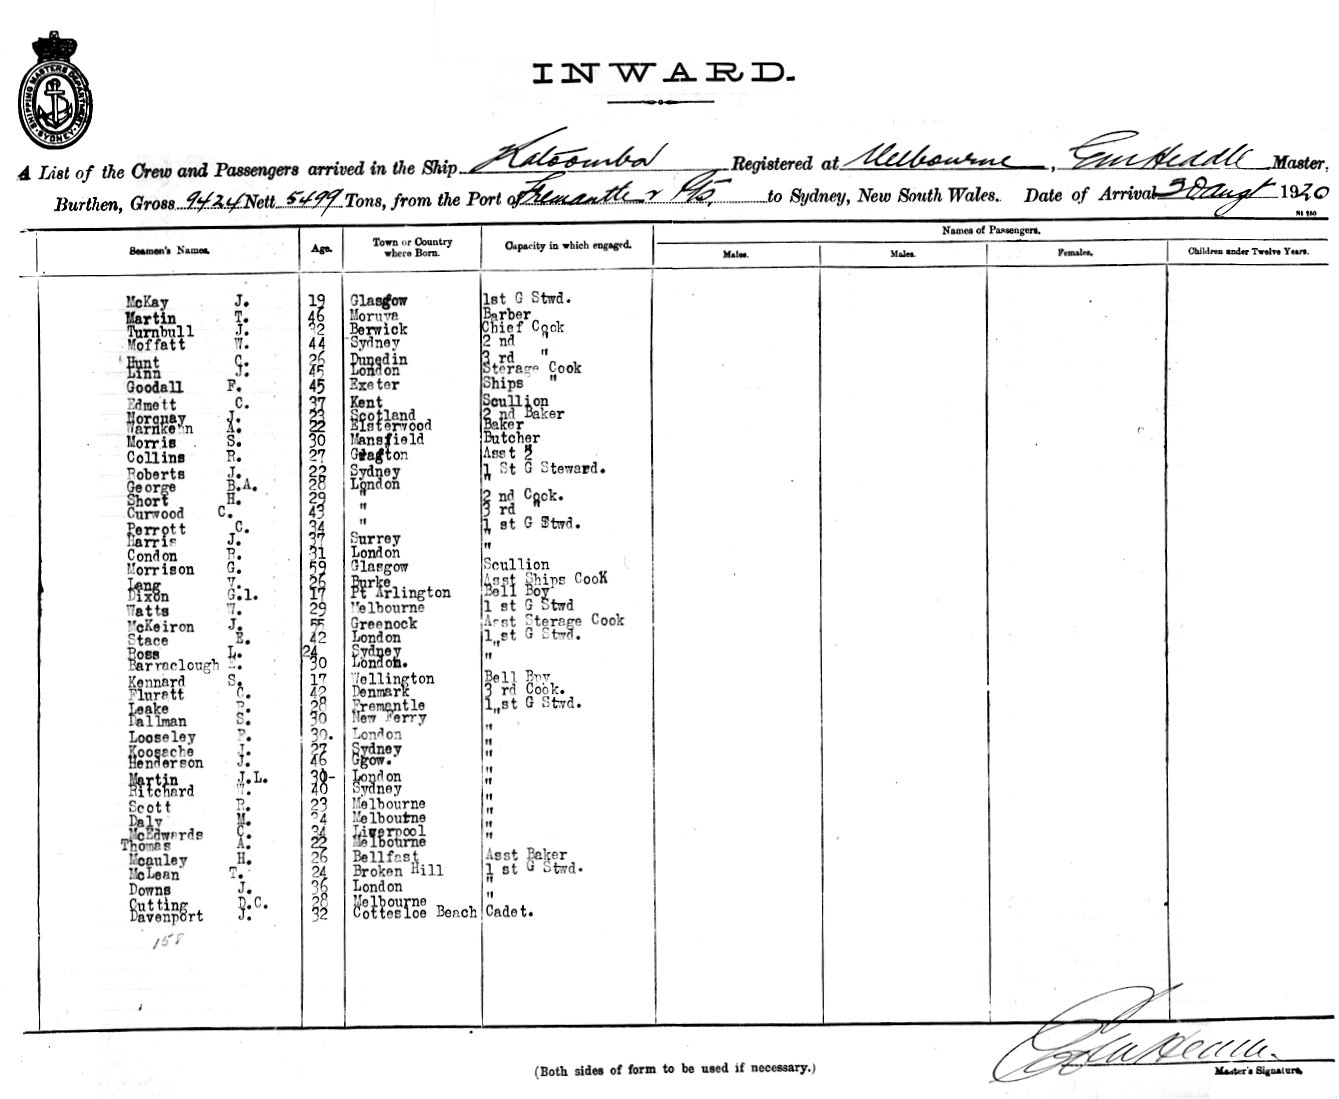 SHIPPING MASTERS DEPARTMENT SYDNEY
INWARD.
A List of the Crew and Passengers arrived in the Ship Katoomba Registered at Melbourne, Master,
Burthen, Gross 9424 Nett 5499 Tons, from the Port of Fremantle & Pts. to Sydney, New South Wales. Date of Arrival 30 Augt 1920
Names of Passengers.
Seamen's Names. Age. Town or Country where Born. Capacity in which engaged. Males. Males. Females. Children under Twelve Years.
McKay J. 19 Glasgow 1st G Stwd.
Martin T. 46 Moruya Barber
Turnbull J. 32 Berwick Chief Cook
Moffatt W. 44 Sydney 2 nd "
Hunt C. 26 Dunedin 3 rd "
Linn J. 45 London Sterage Cook
Goodall F. 45 Exeter Ships "
Edmett C. 37 Kent Scullion
Norquay J. 23 Scotland 2 nd Baker
Warnkeen A. 22 Elsterwood Baker
Morris S. 30 Mansfield Butcher
Collins R. 27 Grafton Asst "
Roberts J. 22 Sydney 1 St G Steward.
George B.A. 28 London "
Short H. 29 " 2 nd Cook.
Curwood C. 43 " 3 rd "
Perrott C. 34 " 1 st G Stwd.
Harris J. 37 Surrey "
Condon R. 31 London "
Morrison G. 59 Glasgow Scullion
Lang V. 26 Burke Asst Ships Cook
Dixon G.l. 17 Pt Arlington Bell Boy
Watts W. 29 Melbourne 1 st G Stwd
McKeiron J. 55 Greenock Asst Sterage Cook
Stace E. 42 London 1 st G Stwd.
Ross L. 24 Sydney "
Barraclough E. 30 London. "
Kennard S. 17 Wellington Bell Boy
Flurett C. 42 Denmark 3 rd Cook.
Leake P. 28 Fremantle 1 st G Stwd.
Dallman S. 30 New Ferry "
Looseley F. 30. London "
Koosache J. 27 Sydney "
Henderson J. 46 Ggow. "
Martin J.L. 30- London "
Pitchard W. 40 Sydney "
Scott R. 23 Melbourne "
Daly M. 24 Melboutne "
McEdwards C. 34 Liverpool "
Thomas A. 22 Melbourne "
Mcauley H. 26 Bellfast Asst Baker
McLean T. 24 Broken Hill 1 st G Stwd.
Downs J. 36 London "
Cutting D.C. 28 Melbourne "
Davenport J. 32 Cottesloe Beach Cadet.
158
Master's Signature.
(Both sides of form to be used if necessary.)